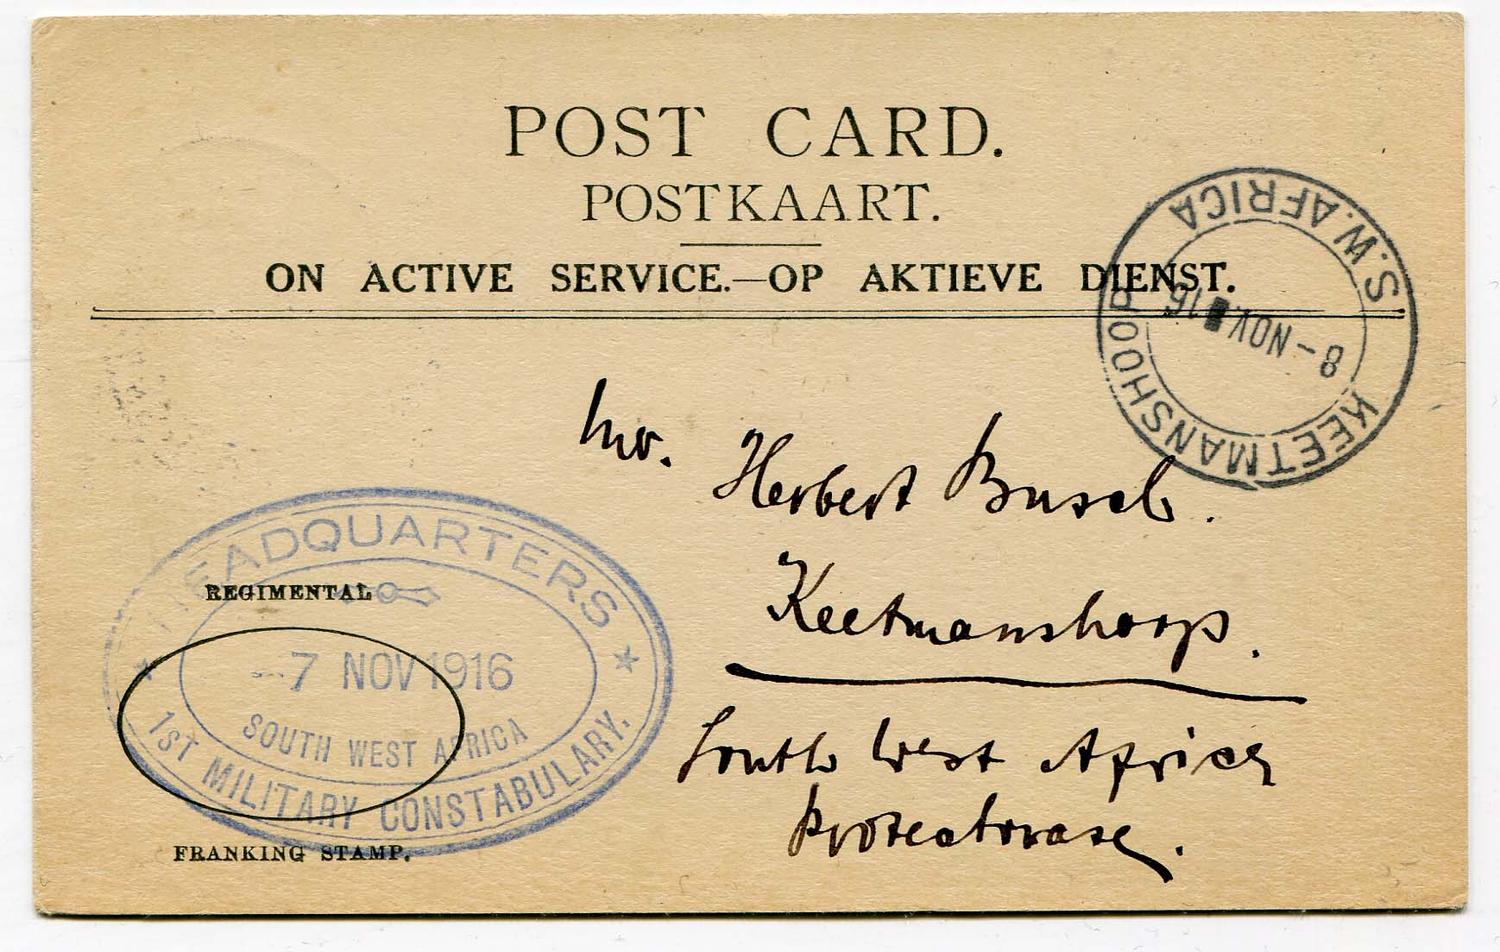 POST CARD.
POSTKAART.
ON ACTIVE SERVICE.—OP AKTIEVE DIENST.
KEETMANSHOOP S.W.AFRICA
8-NOV.16
Mr. Herbert Busch.
Keetmanshoop.
South West Africa
Protectorate.
REGIMENTAL
FRANKING STAMP.
HEADQUARTERS
-7 NOV 1916
SOUTH WEST AFRICA
1ST MILITARY CONSTABULARY.